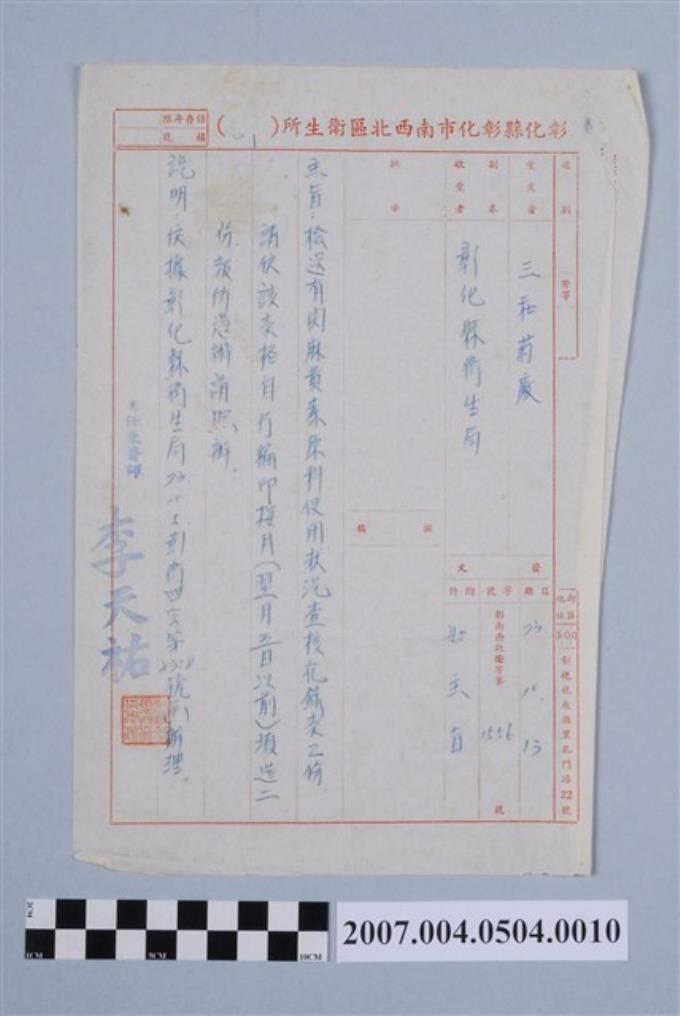 彰化縣彰化市南西北區衛生所(　)
保存年限
檔號
速別
密等
受文者
三和葯廠
副本
收受者
彰化縣衛生局
批示
擬稿
發文
日期
73 10. 13
字號
彰南西北衛字第 1556 號
附件
如主旨
郵區
500
彰化市永福里孔門路22號
主旨:檢送有関麻黄素原料使用狀況查核紀錄表乙份.
請依該表格自行編印按月(翌月五日以前)填造二
份報所憑辦請照辦.
說明:依據彰化縣衛生局73.10.5.彰衛四字第 號函辦理.
主任兼醫師
李天祐
2CM
1CM
5CM
10CM
2007.004.0504.0010